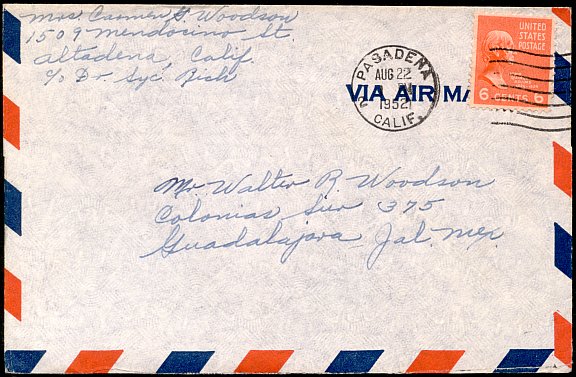 Mrs. Carmen G. Woodson
1509 Mendocino St.
Altadena, Calif.
c/o Dr Syc. Rich
PASADENA
AUG 22
1952
CALIF.
VIA AIR MA
UNITED
STATES
POSTAGE
6 CENTS 6
Mr. Walter R. Woodson
Colonias Sur 375
Guadalajara Jal. Mex.